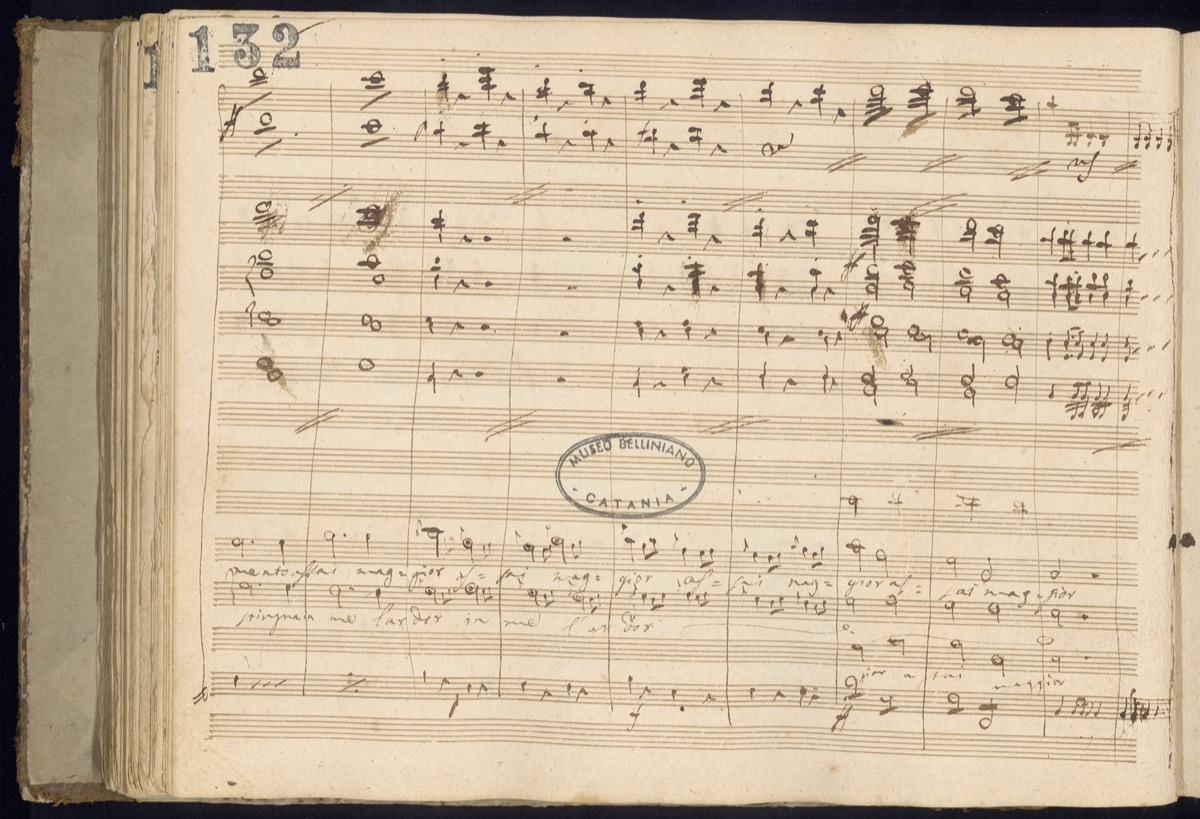 132
MUSEO BELLINIANO
CATANIA
mento assai mag= gior as= sai mag= gior as= sai mag= gior as= sai mag=gior
in me l'ardor in me l'ar dor
gior assai maggior